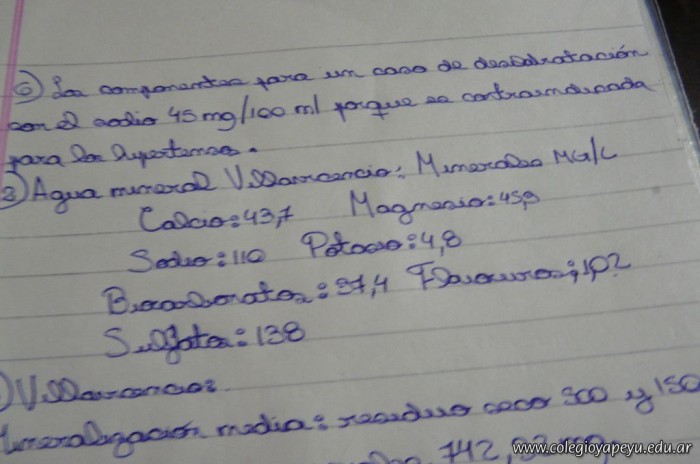 6) Los componentes para un caso de deshidratación
con el sodio 45 mg/100 ml porque es contraindicada
para los hipertensos.
2) Agua mineral Villavicencio: Minerales MG/L
Calcio: 43,7 Magnesio: 45,9
Sodio: 110 Potasio: 4,8
Bicarbonatos: 37,4 Flououros: 1,02
Sulfatos: 138
) Villavicencio:
Mineralización media: residuo seco 500 y 150
742,92
www.colegioyapeyu.edu.ar